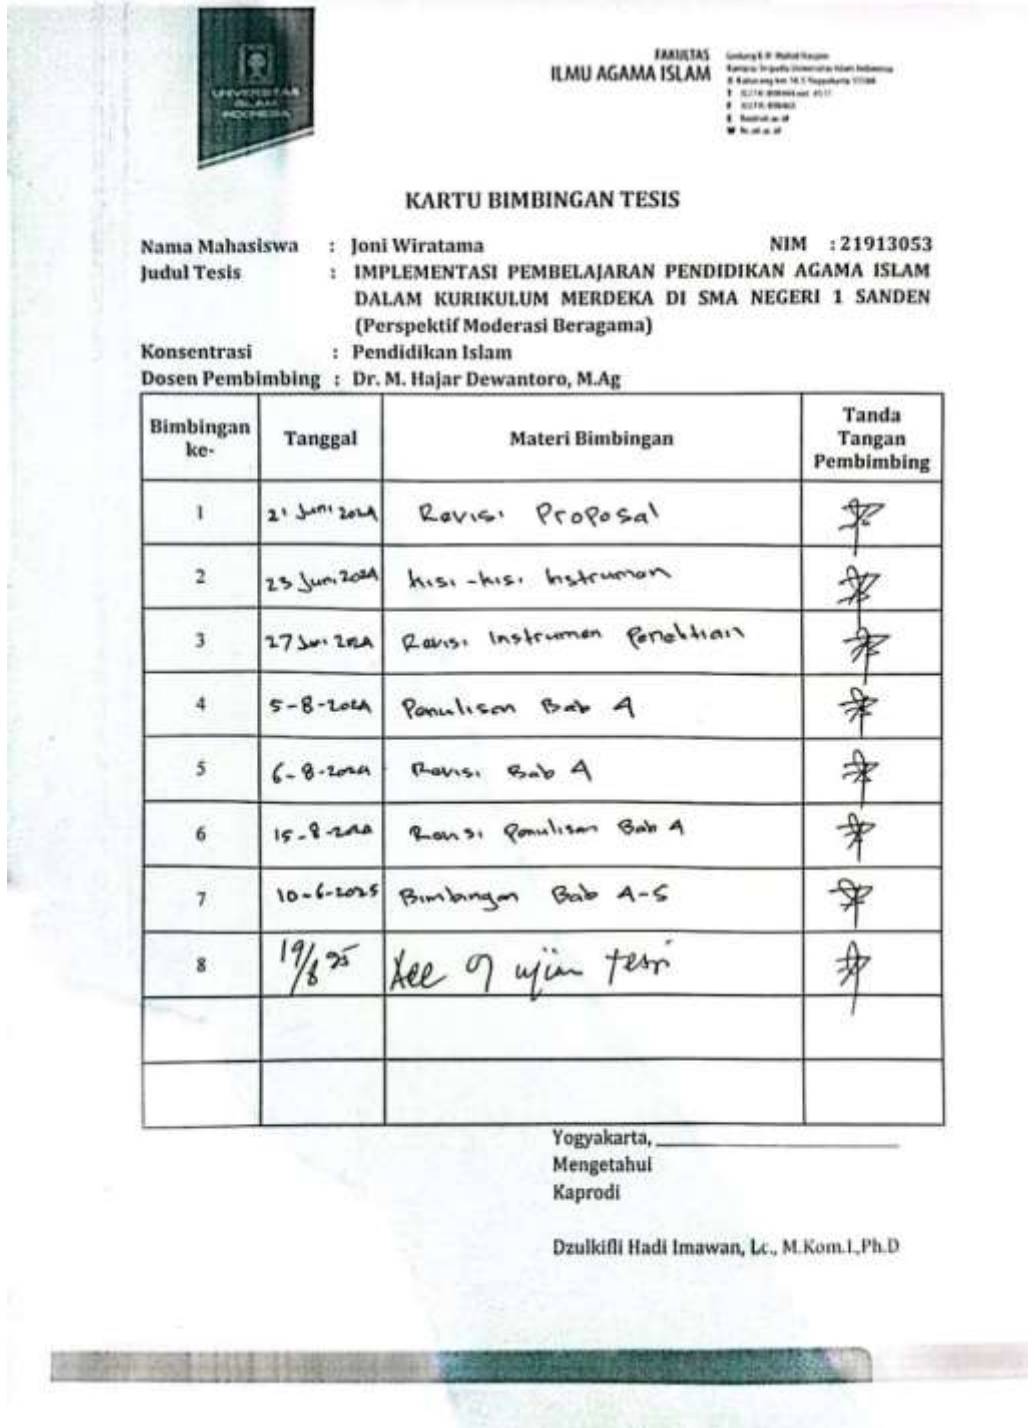 UNIVERSITAS
ISLAM
INDONESIA
FAKULTAS
ILMU AGAMA ISLAM
KARTU BIMBINGAN TESIS
Nama Mahasiswa : Joni Wiratama NIM : 21913053
Judul Tesis : IMPLEMENTASI PEMBELAJARAN PENDIDIKAN AGAMA ISLAM
DALAM KURIKULUM MERDEKA DI SMA NEGERI 1 SANDEN
(Perspektif Moderasi Beragama)
Konsentrasi : Pendidikan Islam
Dosen Pembimbing : Dr. M. Hajar Dewantoro, M.Ag
Bimbingan ke- Tanggal Materi Bimbingan Tanda Tangan Pembimbing
1 21 Juni 2024 Revisi Proposal
2 23 Juni 2024 kisi-kisi Instrumen
3 27 Juni 2024 Revisi Instrumen Penelitian
4 5-8-2024 Penulisan Bab 4
5 6-8-2024 Revisi Bab 4
6 15-8-2024 Revisi Penulisan Bab 4
7 10-6-2025 Bimbingan Bab 4-5
8 19/8 25 Acc ujian tesis
Yogyakarta,
Mengetahui
Kaprodi
Dzulkifli Hadi Imawan, Lc., M.Kom.I.,Ph.D